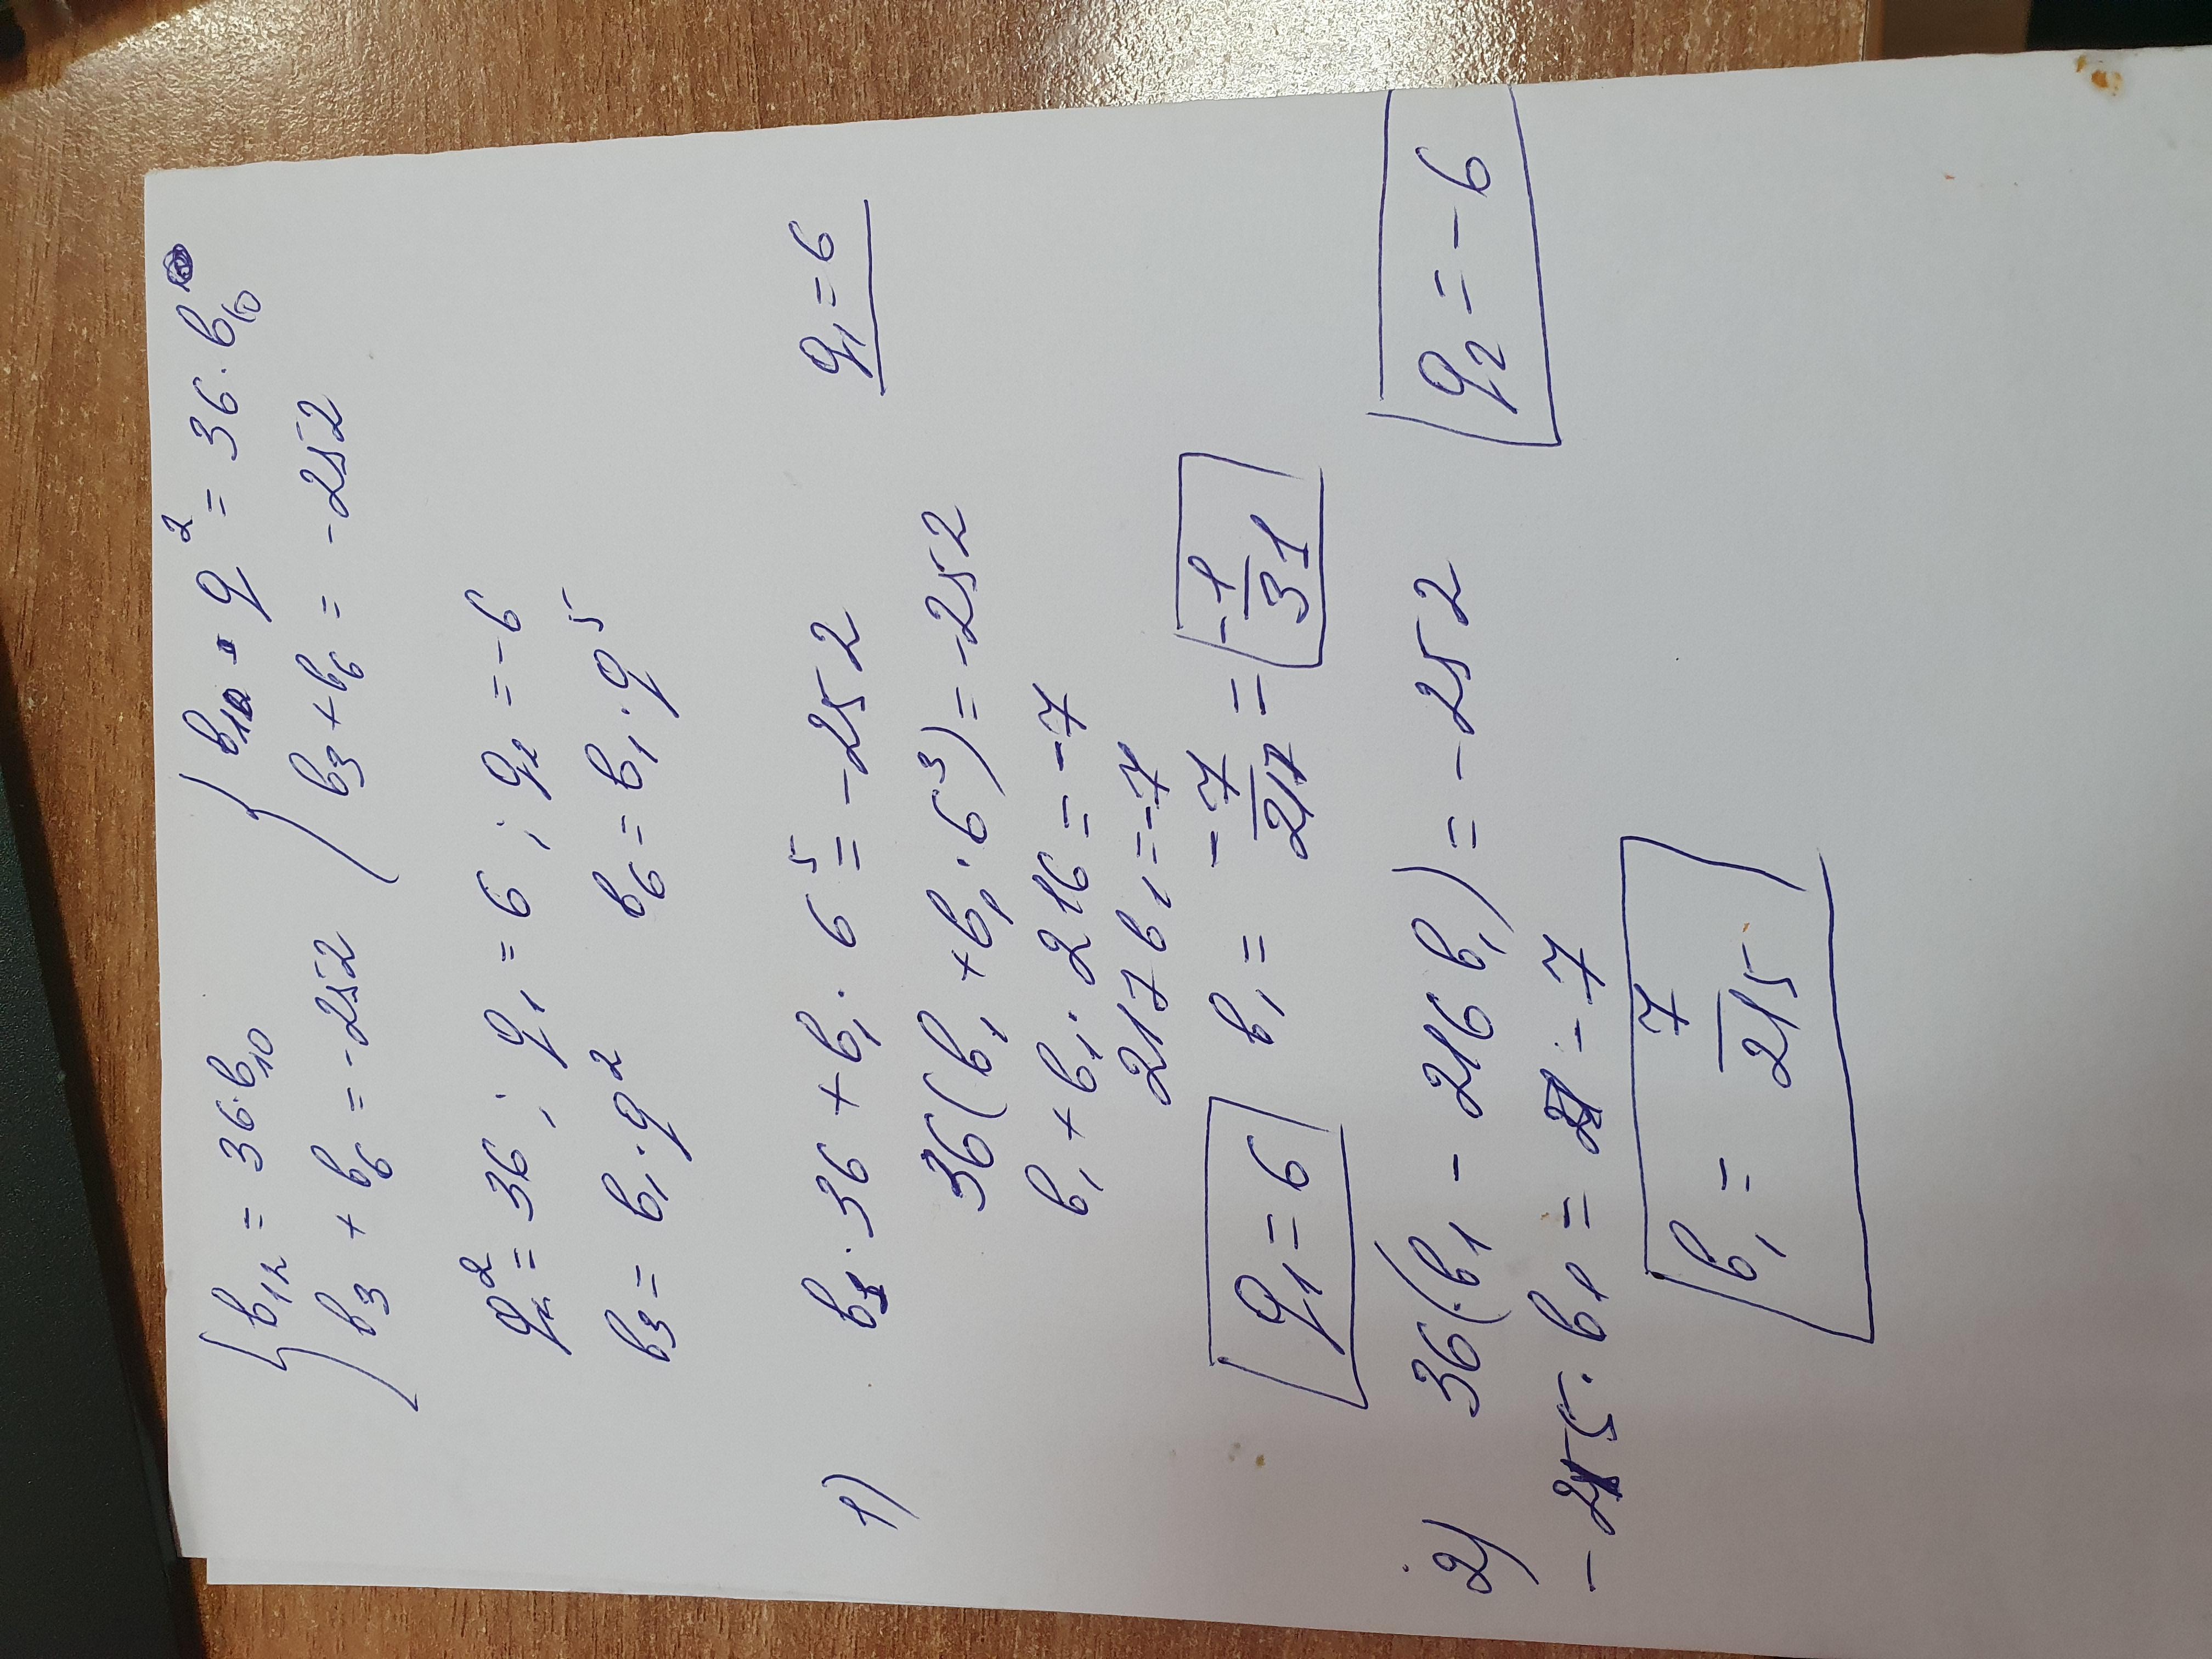 { b₁₂ = 36·b₁₀ { b₁₀·q² = 36·b₁₀
b₃ + b₆ = -252 b₃ + b₆ = -252
q² = 36 ; q₁ = 6 ; q₂ = -6
b₃ = b₁·q² b₆ = b₁·q⁵
1) b₁·36 + b₁·6⁵ = -252 q₁ = 6
36(b₁ + b₁·6³) = -252
b₁ + b₁·216 = -7
217 b₁ = -7
q₁ = 6 b₁ = -7/217 = -1/31
2) 36(b₁ - 216 b₁) = -252 q₂ = -6
-215·b₁ = -7
b₁ = 7/215